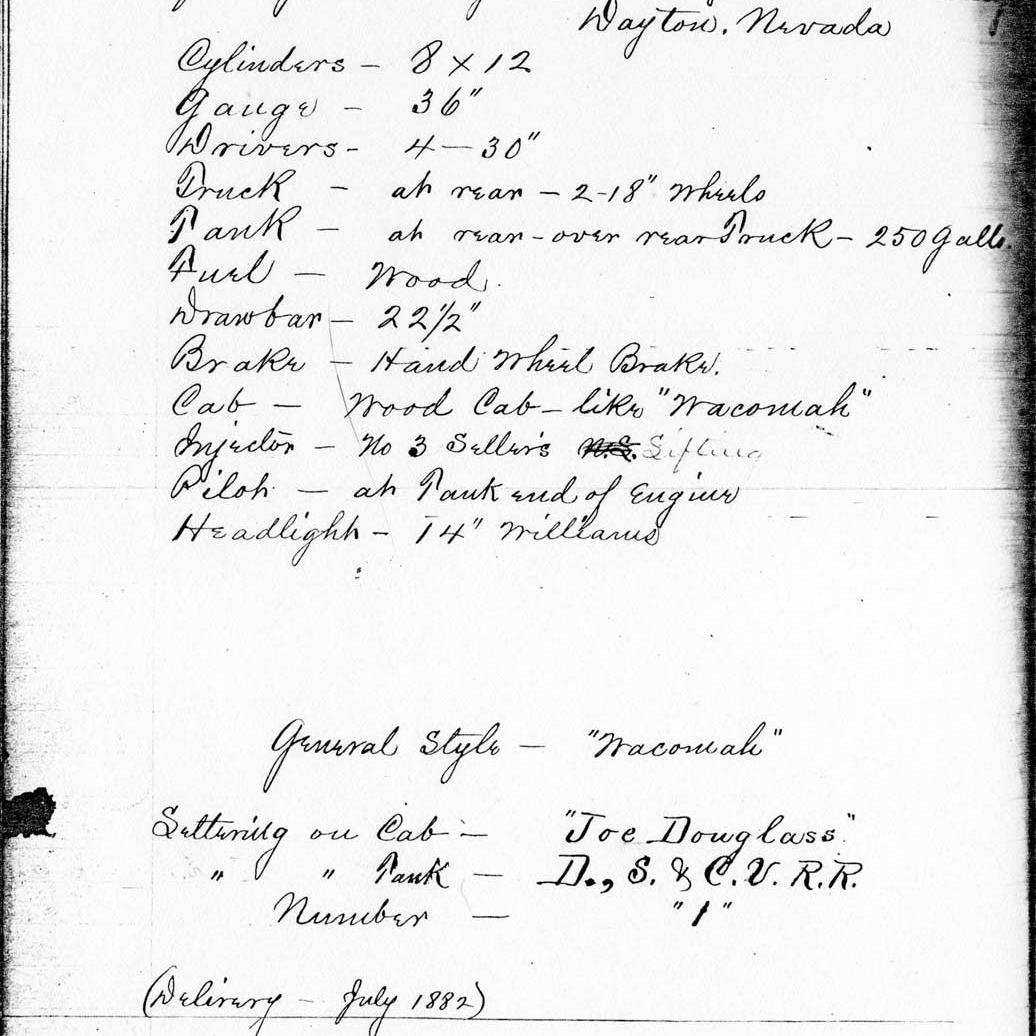 Dayton, Nevada
Cylinders – 8 x 12
Gauge – 36"
Drivers – 4 — 30"
Truck – at rear – 2-18" Wheels
Tank – at rear - over rear Truck – 250 Galls.
Fuel – Wood.
Drawbar – 22 1/2"
Brake – Hand Wheel Brake.
Cab – Wood Cab – like "Wacomah"
Injector – No 3 Seller's N.S. Lifting
Pilot – at Tank end of Engine
Headlight – 14" Williams
General Style – "Wacomah"
Lettering on Cab – "Joe Douglass"
" " Tank – D., S. & C.V. R.R.
Number – "1"
(Delivery – July 1882)